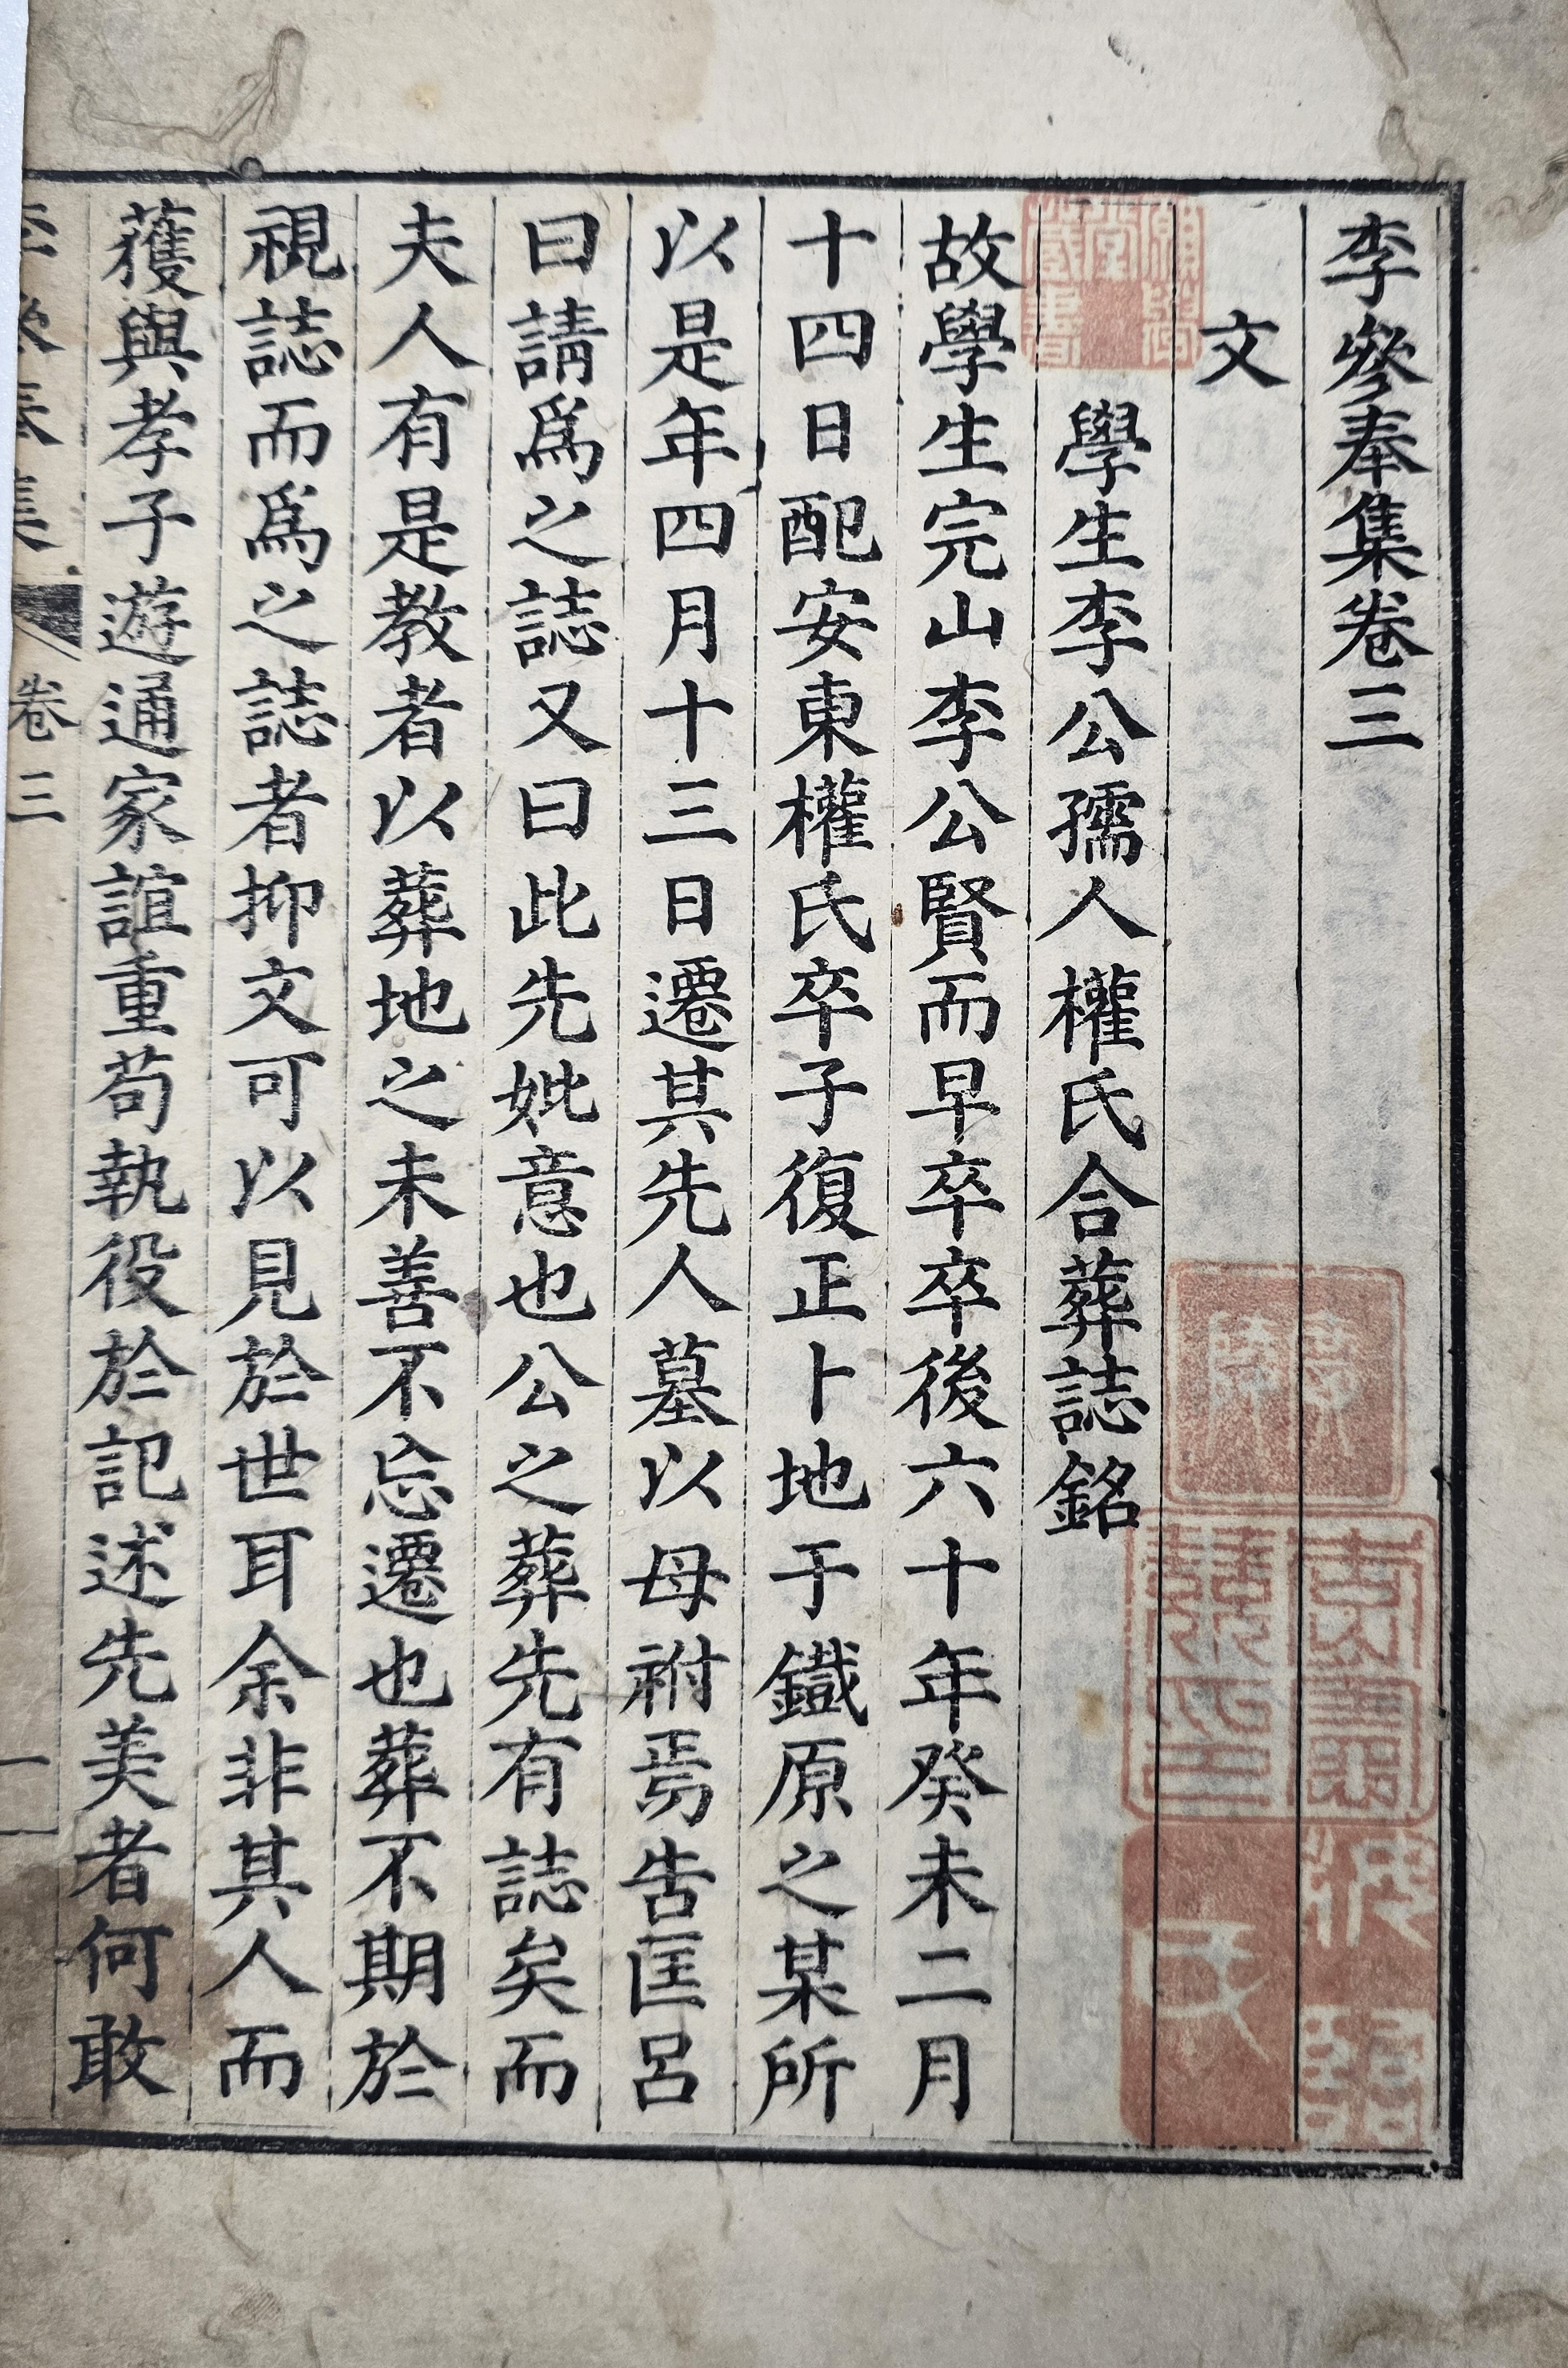 李參奉集卷三
文
學生李公孺人權氏合葬誌銘
故學生完山李公賢而早卒卒後六十年癸未二月
十四日配安東權氏卒子復正卜地于鐵原之某所
以是年四月十三日遷其先人墓以母祔焉告匡呂
曰請爲之誌又曰此先妣意也公之葬先有誌矣而
夫人有是教者以葬地之未善不忘遷也葬不期於
視誌而爲之誌者抑文可以見於世耳余非其人而
蒦與孝子遊通家誼重苟執役於記述先美者何敢
李參奉集 卷三 一